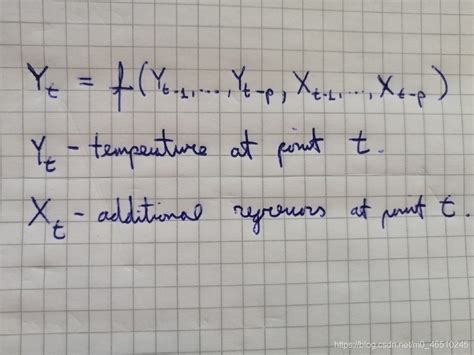 Y_t = f(Y_{t-1},...,Y_{t-p}, X_{t-1},...,X_{t-p})
Y_t - tempeuture at point t.
X_t - additional regressors at point t.
https://blog.csdn.net/m0_46510245